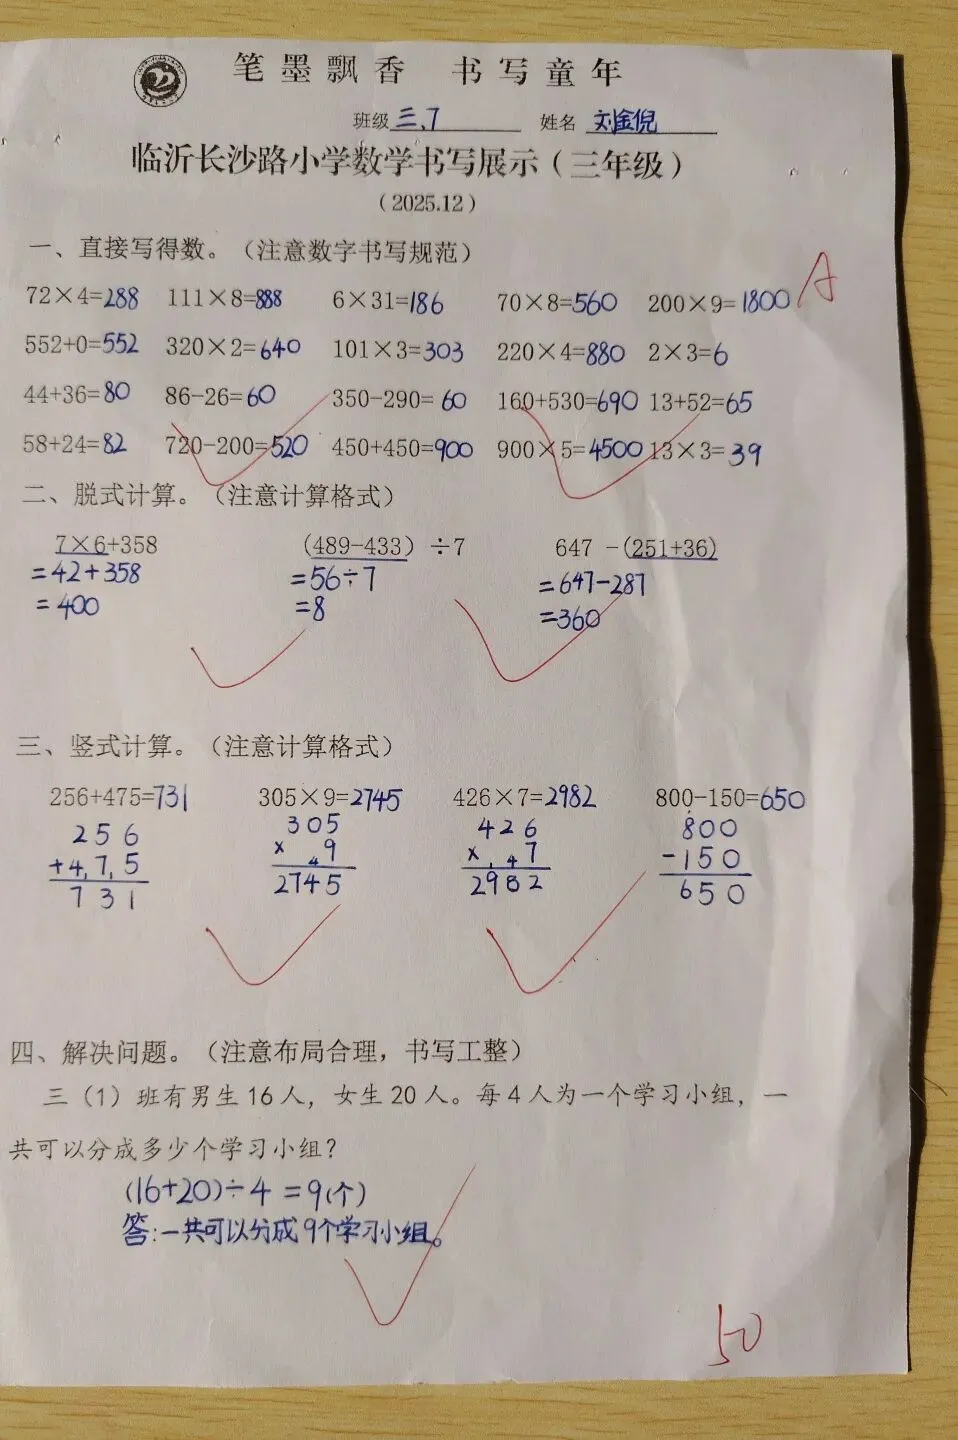 笔墨飘香 书写童年
班级 三.7 姓名 刘金倪
临沂长沙路小学数学书写展示（三年级）
（2025.12）
一、直接写得数。（注意数字书写规范）
72×4=288 111×8=888 6×31=186 70×8=560 200×9=1800
A
552+0=552 320×2=640 101×3=303 220×4=880 2×3=6
44+36=80 86-26=60 350-290=60 160+530=690 13+52=65
58+24=82 720-200=520 450+450=900 900×5=4500 13×3=39
二、脱式计算。（注意计算格式）
7×6+358 （489-433）÷7 647 -(251+36)
=42+358 =56÷7 =647-287
=400 =8 =360
三、竖式计算。（注意计算格式）
256+475=731 305×9=2745 426×7=2982 800-150=650
256 305 426 800
+4,7,5 × 49 × ,47 -150
731 2745 2982 650
四、解决问题。（注意布局合理，书写工整）
三（1）班有男生16人，女生20人。每4人为一个学习小组，一
共可以分成多少个学习小组？
(16+20)÷4=9(个)
答:一共可以分成9个学习小组。
50